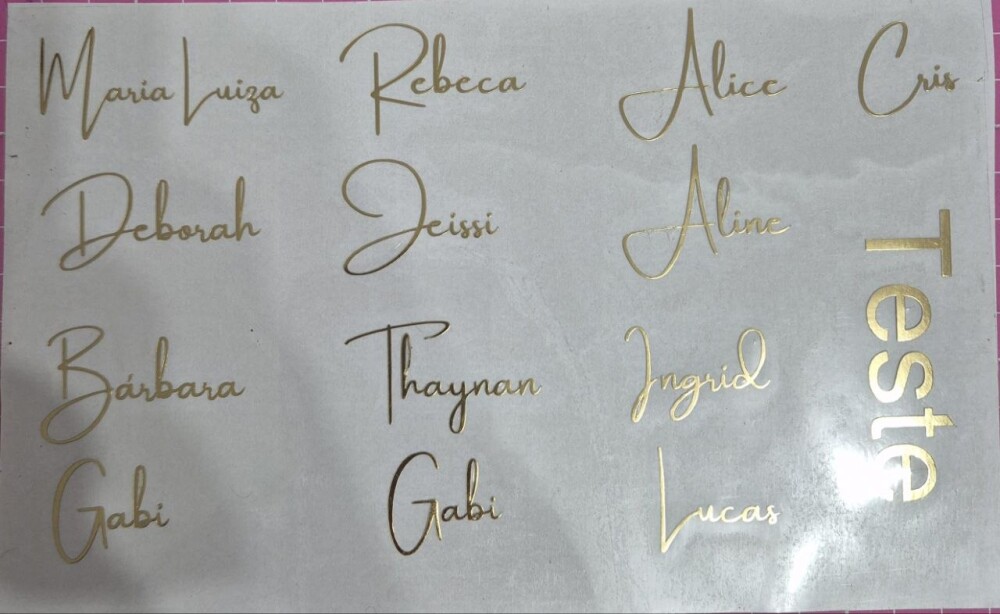 Maria Luiza
Rebeca
Alice
Cris
Deborah
Jeissi
Aline
Teste
Bárbara
Thaynan
Ingrid
Gabi
Gabi
Lucas